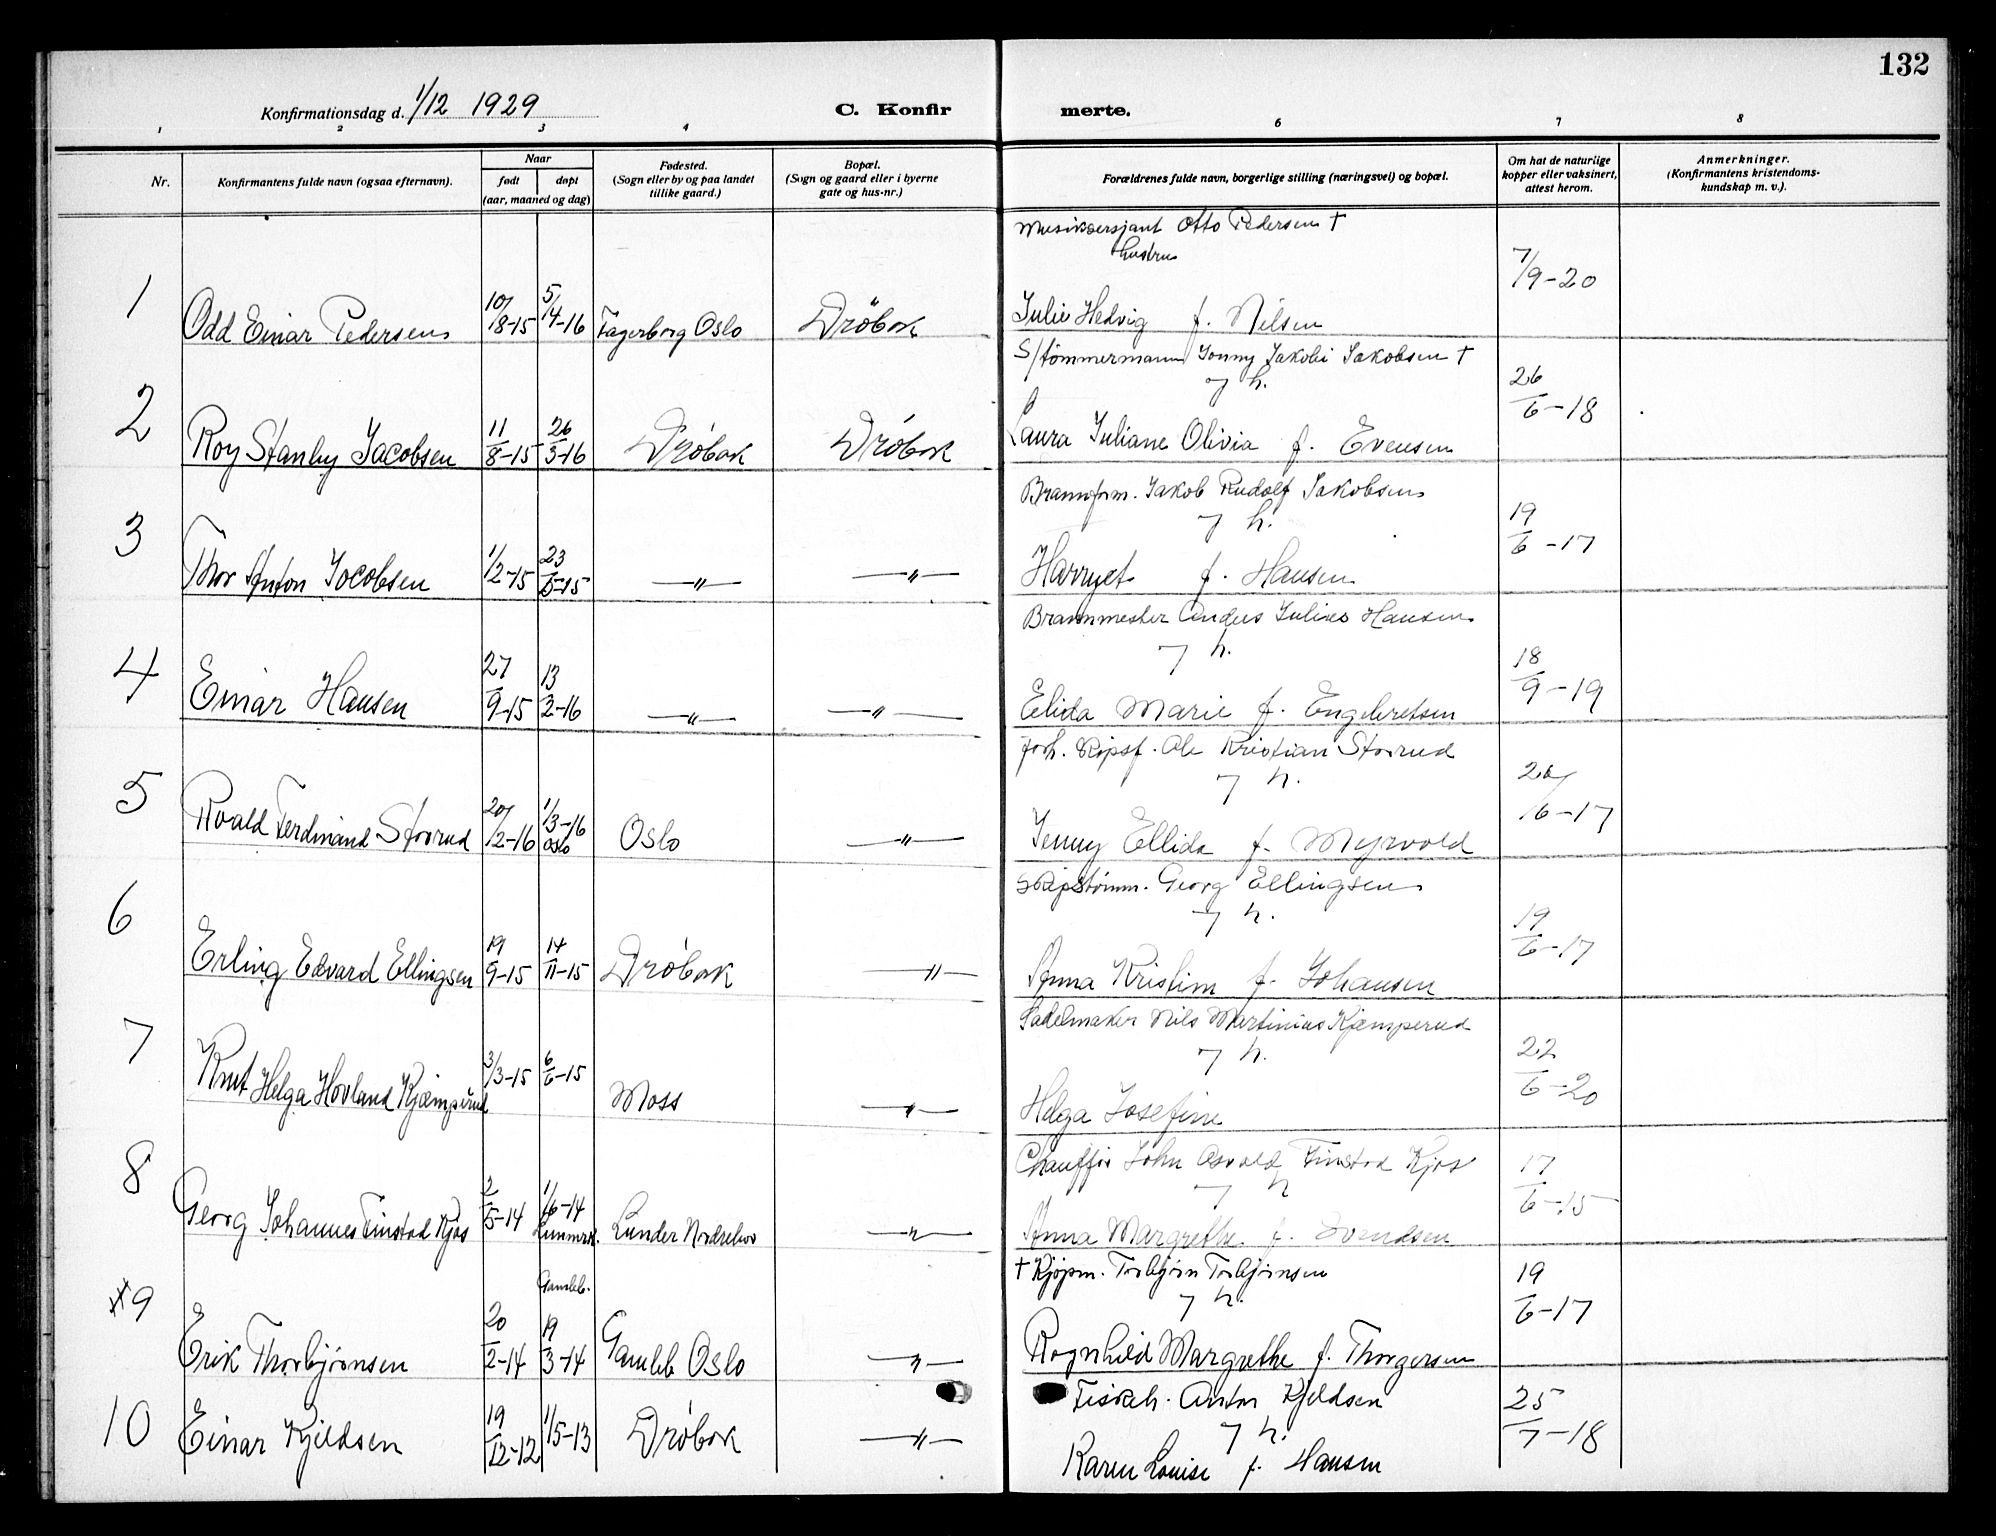 132
Konfirmationsdag d. 1/12 1929 C. Konfir merte.
1 2 3 4 5 6 7 8
Nr. Konfirmantens fulde navn (ogsaa efternavn). Naar født døpt (aar, maaned og dag) Fødested. (Sogn eller by og paa landet tillike gaard.) Bopæl. (Sogn og gaard eller i byerne gate og hus-nr.) Forældrenes fulde navn, borgerlige stilling (næringsvei) og bopæl. Om hat de naturlige kopper eller vaksinert, attest herom. Anmerkninger. (Konfirmantens kristendoms-kundskap m. v.).
Musiksersjant Otto Pedersen †
hustru
1 Odd Einar Pedersen 10/8-15 5/4-16 Fagerborg Oslo Drøbak Julie Hedvig f. Nilsen 7/9-20
S/tømmermann Jonny Jakobi Jakobsen †
7 h.
2 Roy Stanley Jacobsen 11/8-15 26/3-16 Drøbak Drøbak Laura Juliane Olivia f. Evensen 26/6-18
Brannform. Jakob Rudolf Jakobsen
7 h.
3 Thor Anton Jocobsen 1/2-15 23/5-15 —"— —"— Harryet f. Hansen 19/6-17
Brannmester Anders Julius Hansen
7 h.
4 Einar Hansen 27/9-15 13/2-16 —"— —"— Elida Marie f. Engebretsen 18/9-19
forh. Skipsf. Ole Kristian Storrud
7 h.
5 Roald Ferdinand Storrud 20/2-16 1/3-16 Oslo Oslo —"— Jenny Ellida f. Myrvold 26/6-17
Skipstømm. Georg Ellingsen
7 h.
6 Erling Edvard Ellingsen 19/9-15 14/11-15 Drøbak —"— Anna Kristine f. Johansen 19/6-17
Sadelmaker Nils Martinius Kjæmperud
7 h.
7 Knut Helga Hovland Kjæmperud 3/3-15 6/6-15 Moss —"— Helga Josefine 22/6-20
Chauffør John Osvald Finstad Kjos
7 h
8 Georg Johannes Finstad Kjos 2/5-14 1/6-14 Lunder Nordrehov —"— Anna Margrethe f. Svendsen 17/6-15
† Kjøpm. Torbjørn Torbjørnsen
7 h.
9 Erik Thorbjørnsen 20/2-14 Gamleb. 19/3-14 Gamleb Oslo —"— Rognhild Margrethe f. Thorgersen 19/6-17
Fiskeh. Anton Kjeldsen
7 h.
10 Einar Kjeldsen 19/12-12 1/5-13 Drøbak —"— Karen Louise f. Hansen 25/7-18